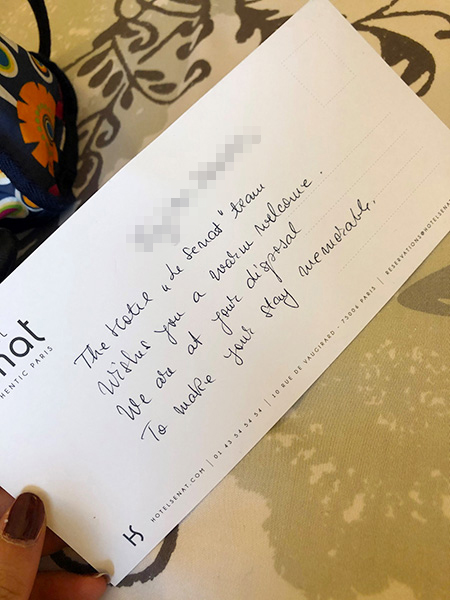 The Hotel "de Senat" team
Wishes you a warm welcome.
We are at your disposal
To make your stay memorable.
L
nat
HENTIC PARIS
HS
HOTELSENAT.COM | 01 43 54 54 54 | 10 RUE DE VAUGIRARD - 75006 PARIS | RESERVATIONS@HOTELSENAT